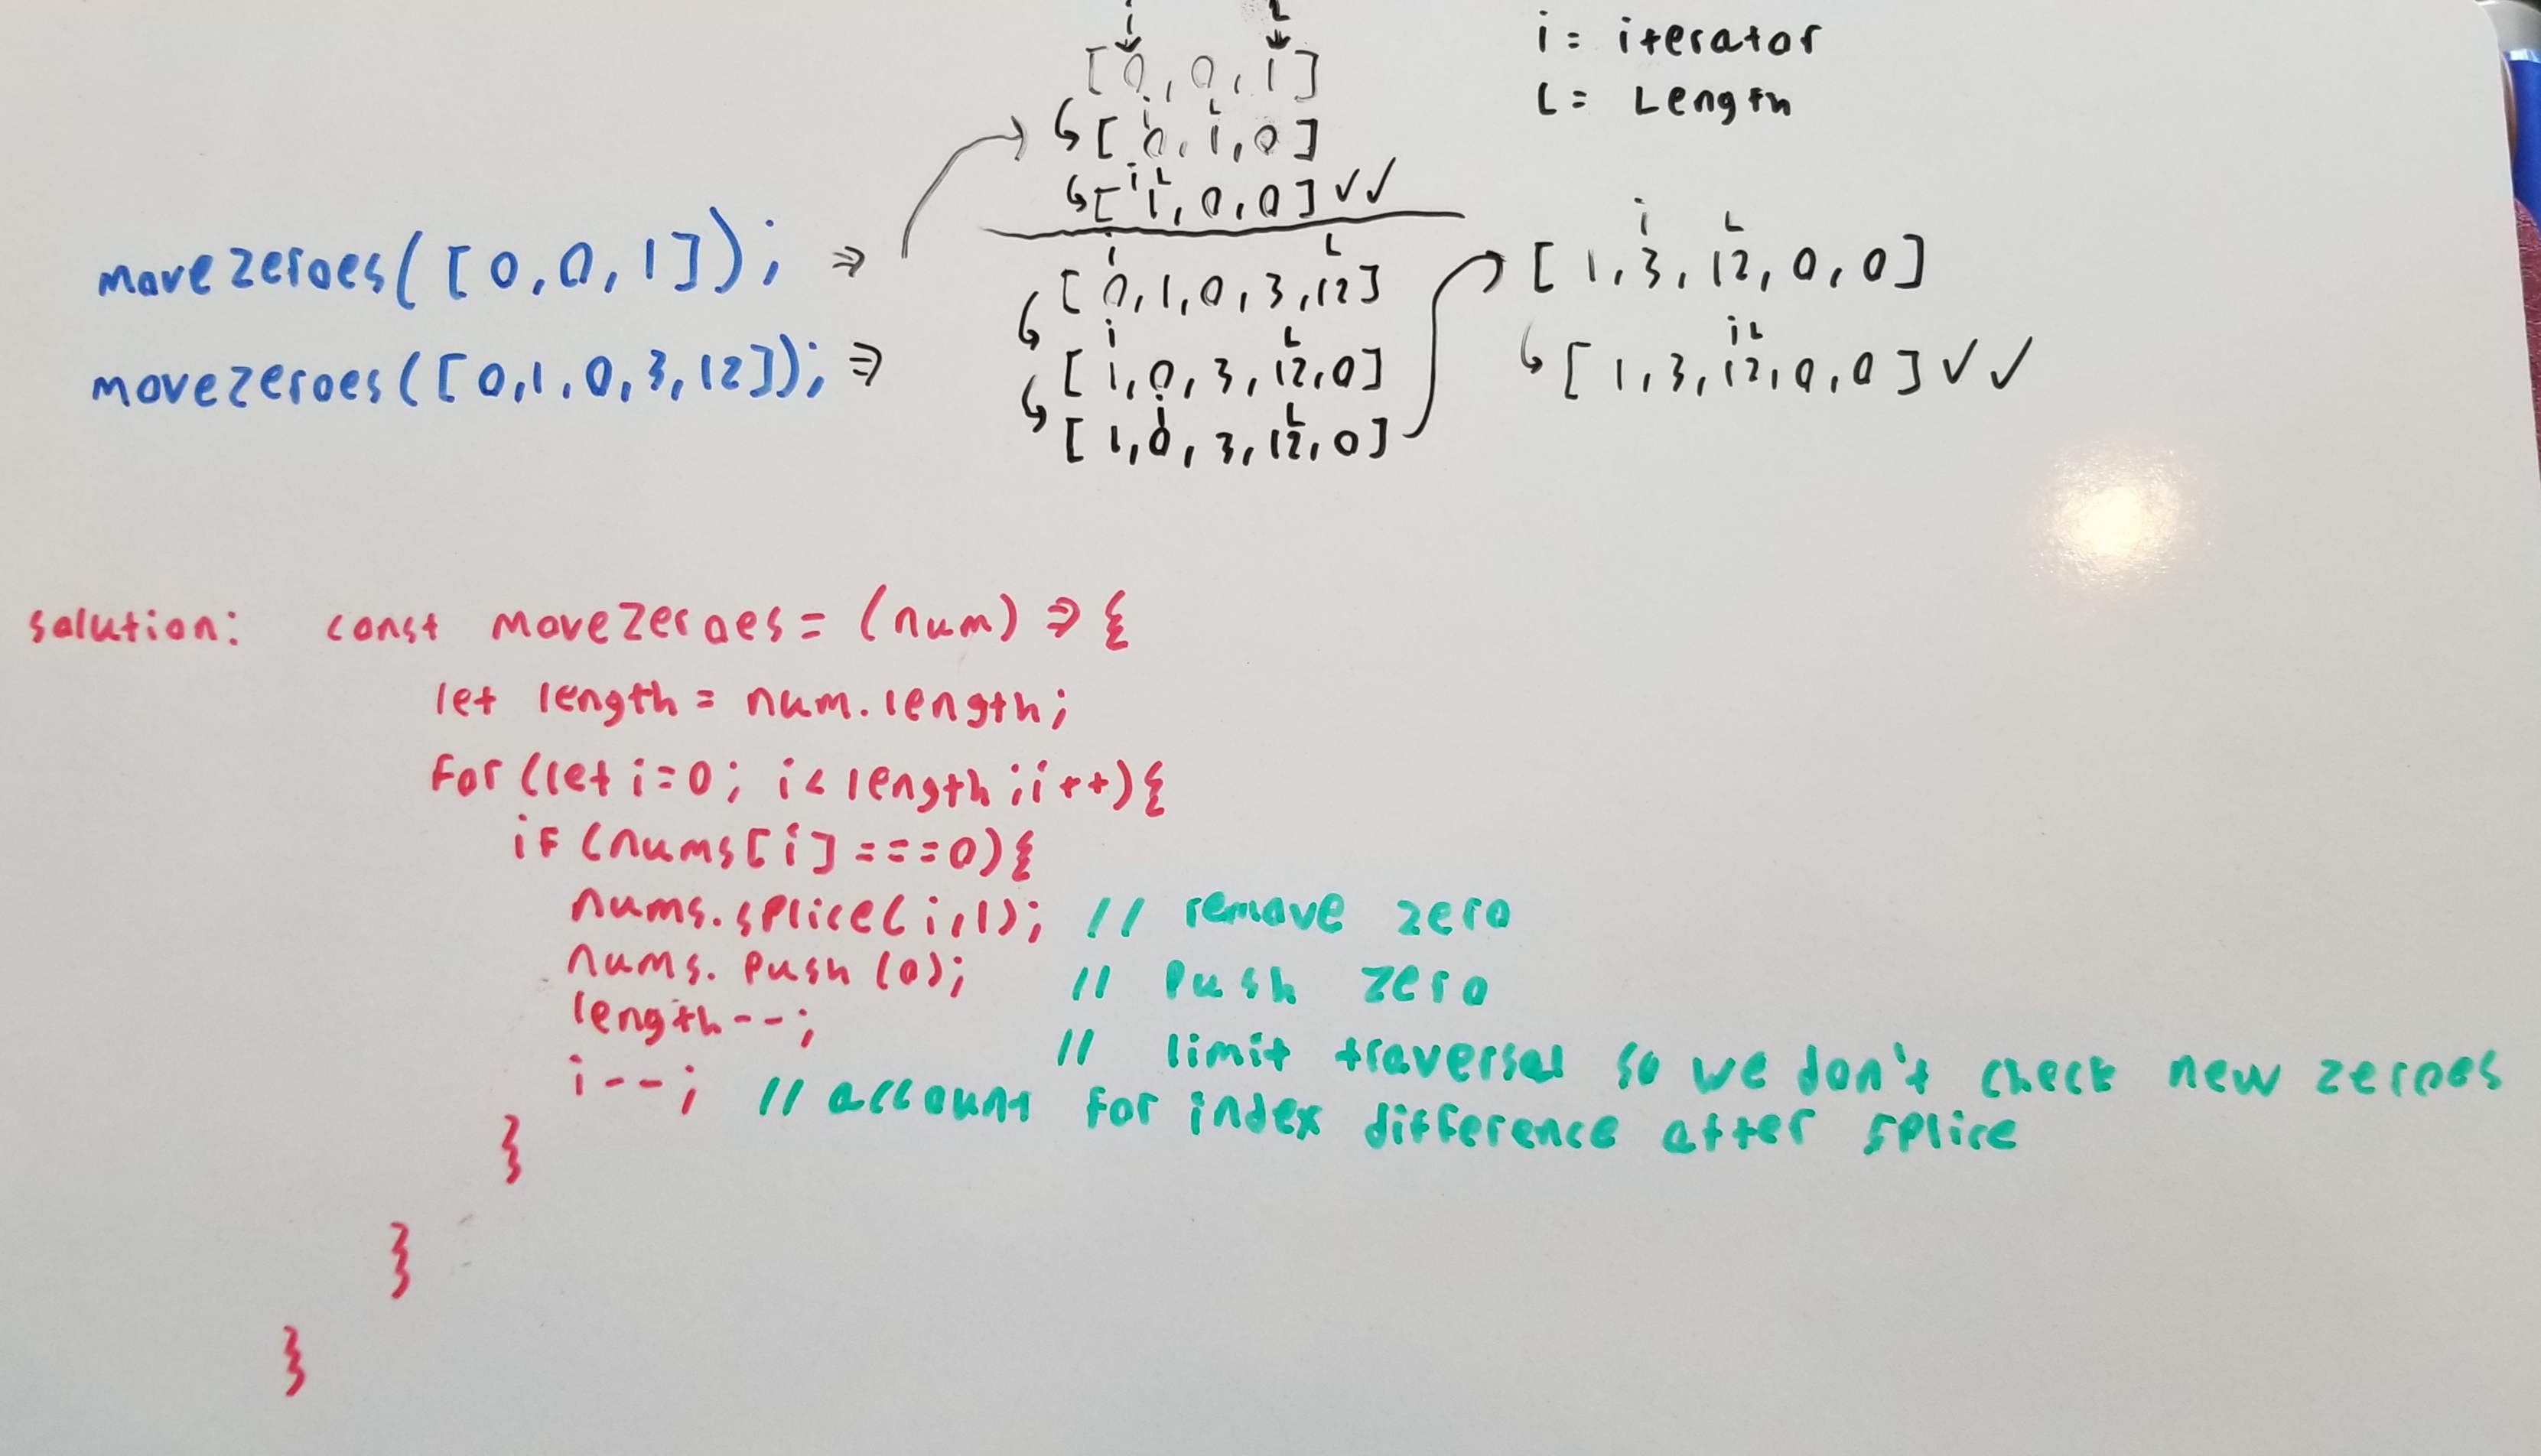 i L
[0,0,1]
i L
[0,1,0]
i L
[1,0,0] ✓✓
i = iterator
L = Length
movezeroes([0,0,1]); ⇒
movezeroes([0,1,0,3,12]); ⇒
i L
[0,1,0,3,12]
i L
[1,0,3,12,0]
i L
[1,0,3,12,0]
i L
[1,3,12,0,0]
i L
[1,3,12,0,0] ✓✓
solution: const moveZeroes = (num) => {
let length = num.length;
for (let i=0; i< length; i++){
if (nums[i] ===0){
nums.splice(i,1); // remove zero
nums.push(0); // Push zero
length--; // limit traversal so we don't check new zeroes
i--; // account for index difference after splice
}
}
}